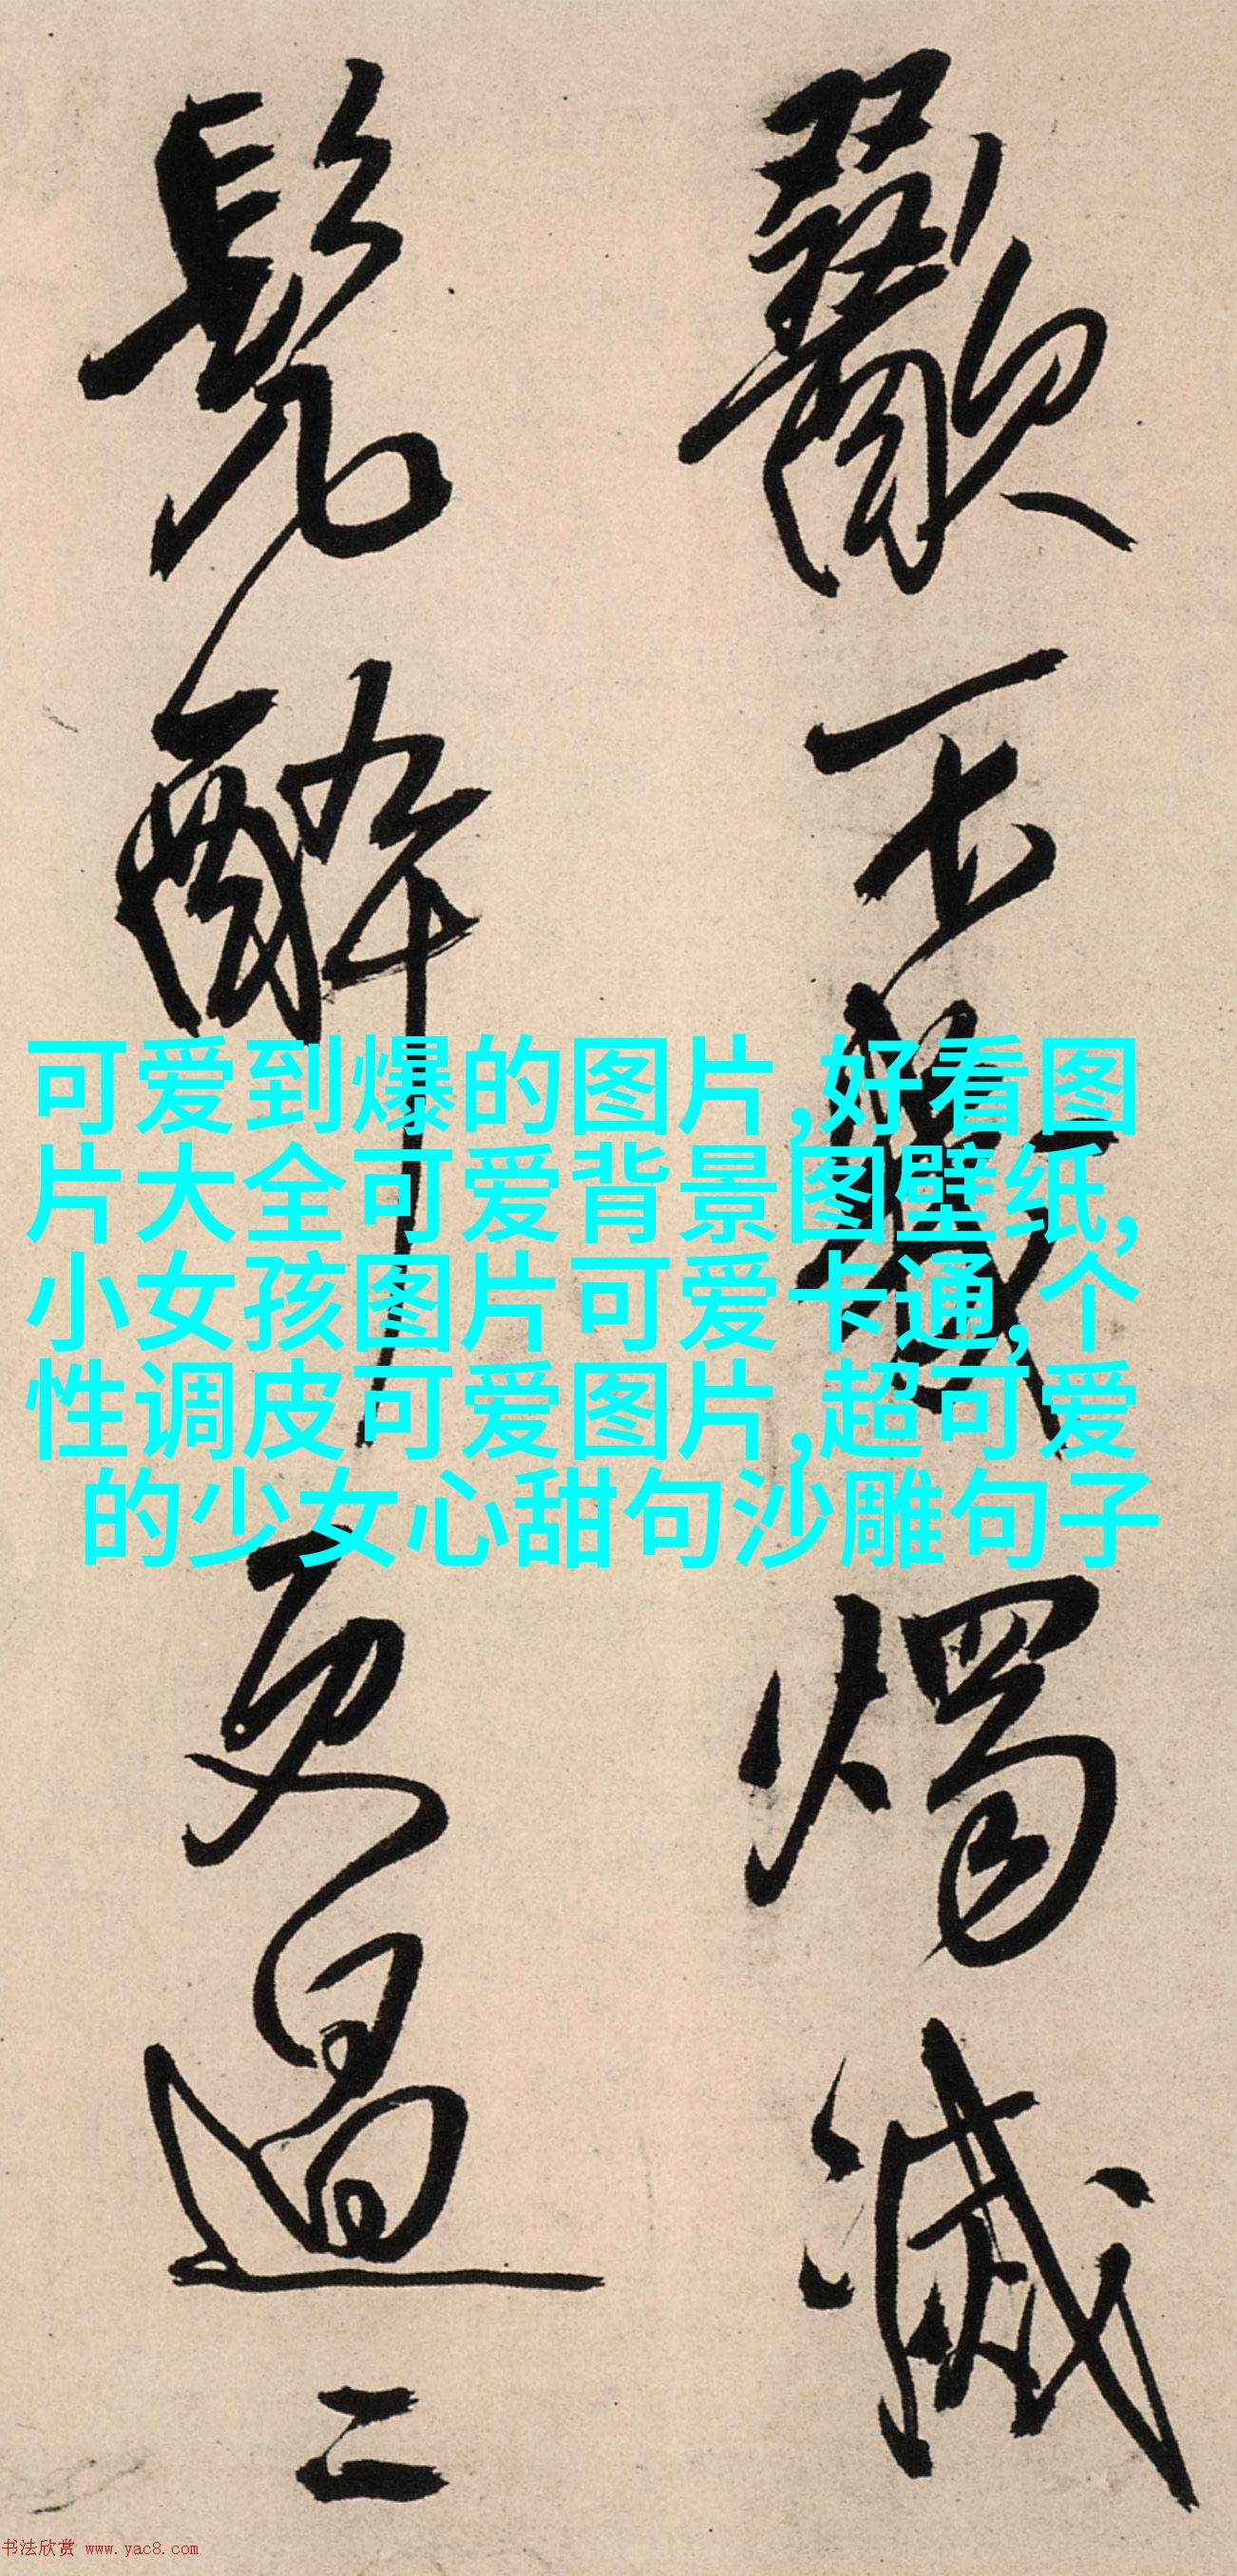 可爱到爆的图片,好看图
片大全可爱背景图壁纸,
小女孩图片可爱卡通,个
性调皮可爱图片,超可爱
的少女心甜句沙雕句子
不
烛 灭
鬓 醉 更 过 二
书法欣赏 www.yac8.com